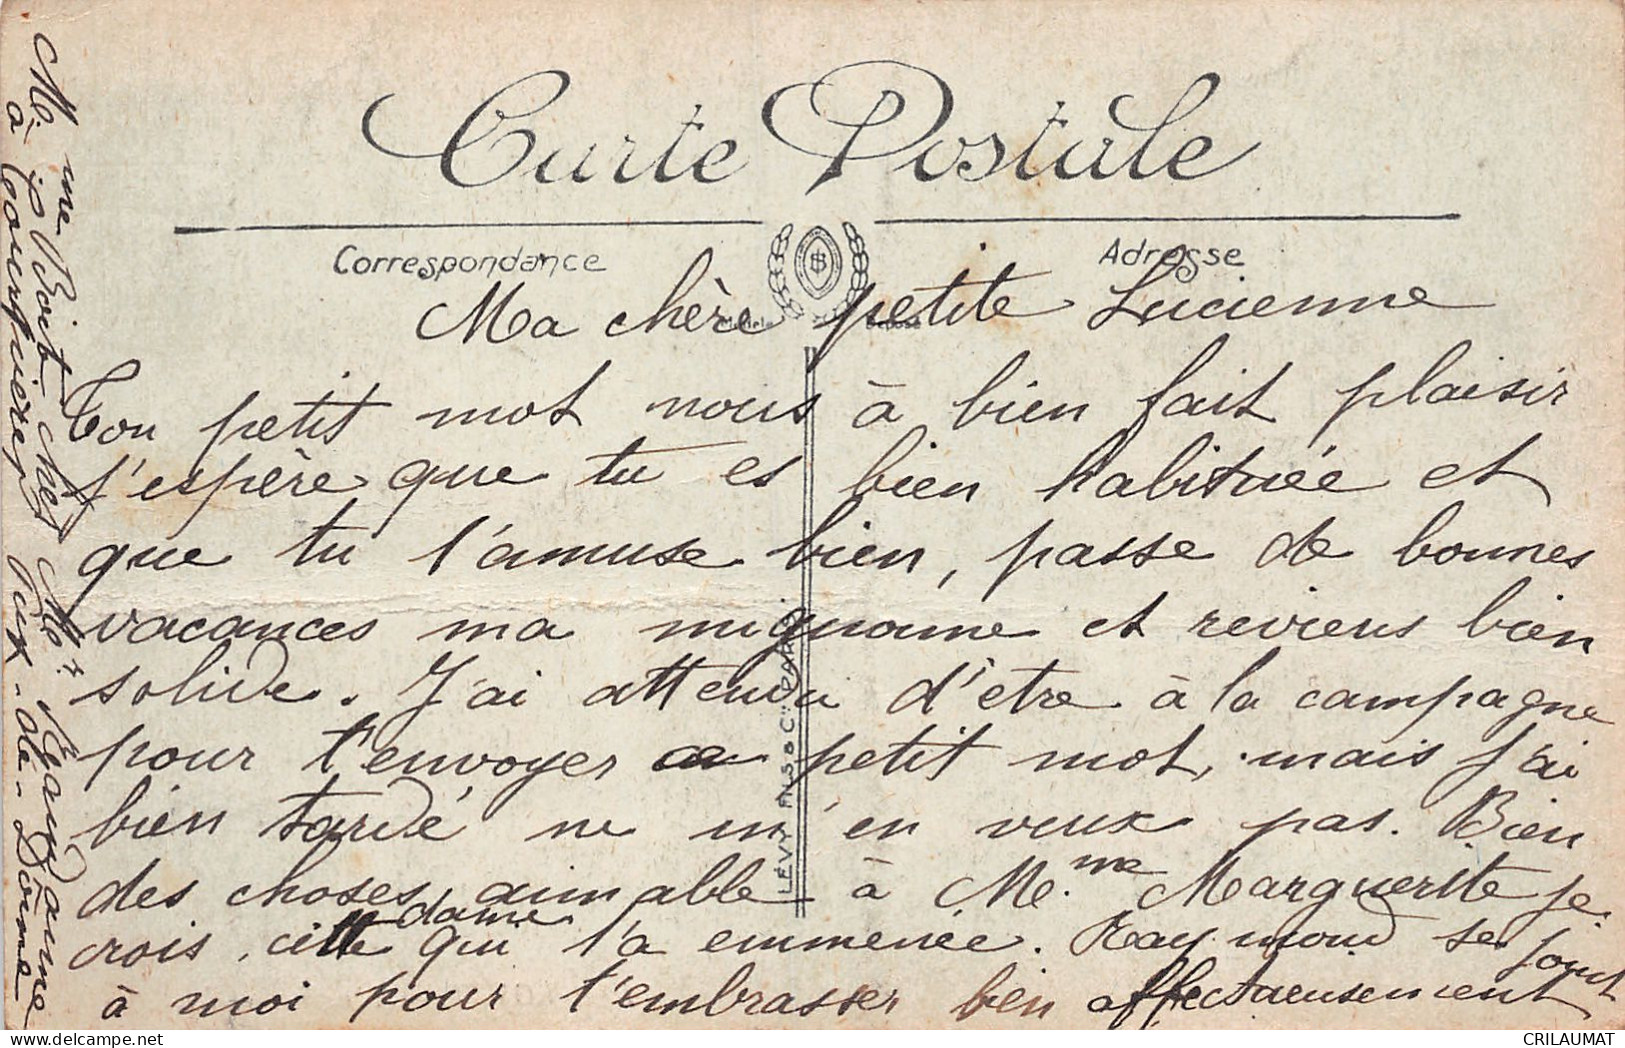 Carte Postale
Correspondance
Adresse
Ma chère petite Lucienne
Ton petit mot nous à bien fait plaisir
j'espère que tu es bien habituée et
que tu t'amuse bien, passe de bonnes
vacances ma mignonne et reviens bien
solide. J'ai attendu d'être à la campagne
pour t'envoyer ce petit mot, mais j'ai
bien tardé ne m'en veux pas. Bien
des choses aimable à Mme Marguerite je
crois, cette dame qui t'a emmenée. Raymond se joint
à moi pour t'embrasser bien affectueusement
Mme Boit chez Mr Jeandanne
à Goutnières Puy-de-Dôme
LÉVY FILS & Cie PARIS
CRILAUMAT